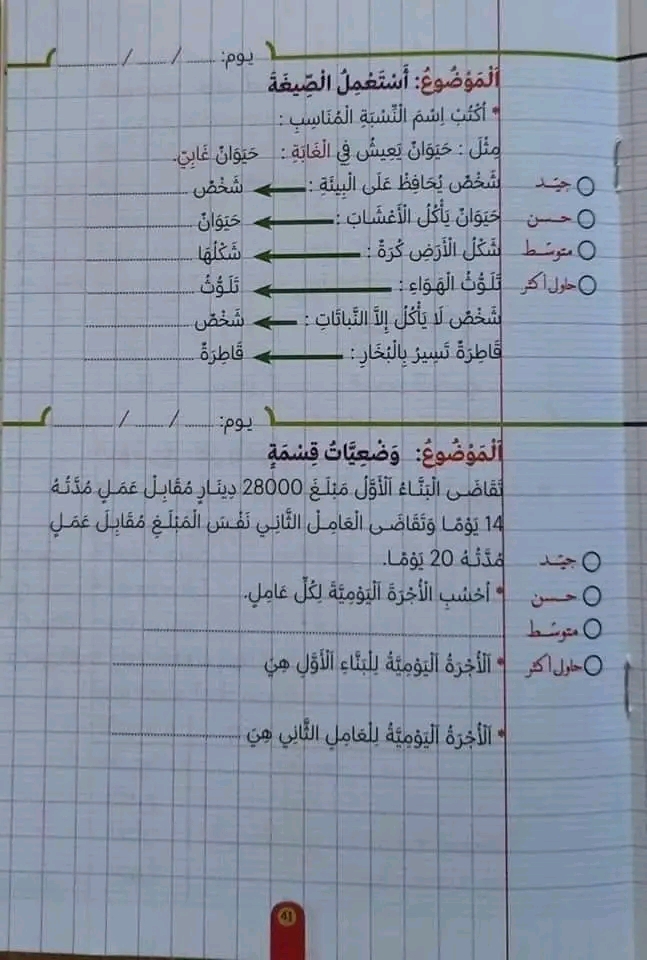 يوم: ...... / ...... / ............
اَلْمَوْضُوعُ: أَسْتَعْمِلُ الْصِّيغَةَ
* اُكْتُبْ اِسْمَ النِّسْبَةِ الْمُنَاسِبِ :
مِثْلَ : حَيَوَانٌ يَعِيشُ فِي الْغَابَةِ : حَيَوَانٌ غَابِيّ.
شَخْصٌ يُحَافِظُ عَلَى الْبِيئَةِ : شَخْصٌ ............ جيّد
حَيَوَانٌ يَأْكُلُ الْأَعْشَابَ : حَيَوَانٌ ............ حسن
شَكْلُ الْأَرَضِ كُرَةٌ : شَكْلُهَا ............ متوسّط
تَلَوُّثُ الْهَوَاءِ : تَلَوُّثُ ............ حاول أكثر
شَخْصٌ لَا يَأْكُلُ إِلاَّ النَّباتَاتِ : شَخْصٌ ............
قَاطِرَةٌ تَسِيرُ بِالْبُخَارِ : قَاطِرَةٌ ............
يوم: ...... / ...... / ............
اَلْمَوْضُوعُ: وَضْعِيَّاتُ قِسْمَةٍ
تَقَاضَى الْبَنَّاءُ الْأَوَّلُ مَبْلَغَ 28000 دِينَارٍ مُقَابِلَ عَمَلٍ مُدَّتُهُ
14 يَوْمًا وَتَقَاضَى الْعَامِلُ الثَّانِي نَفْسَ الْمَبْلَغِ مُقَابِلَ عَمَلٍ
مُدَّتُهُ 20 يَوْمًا. جيّد
* اُحْسُبِ الْأُجْرَةَ اَلْيَوْمِيَّةَ لِكُلِّ عَامِلٍ. حسن
............ متوسّط
* اَلْأُجْرَةُ اَلْيَوْمِيَّةُ لِلْبَنَّاءِ اَلْأَوَّلِ هِيَ ............ حاول أكثر
* اَلْأُجْرَةُ اَلْيَوْمِيَّةُ لِلْعَامِلِ الثَّانِي هِيَ ............
41